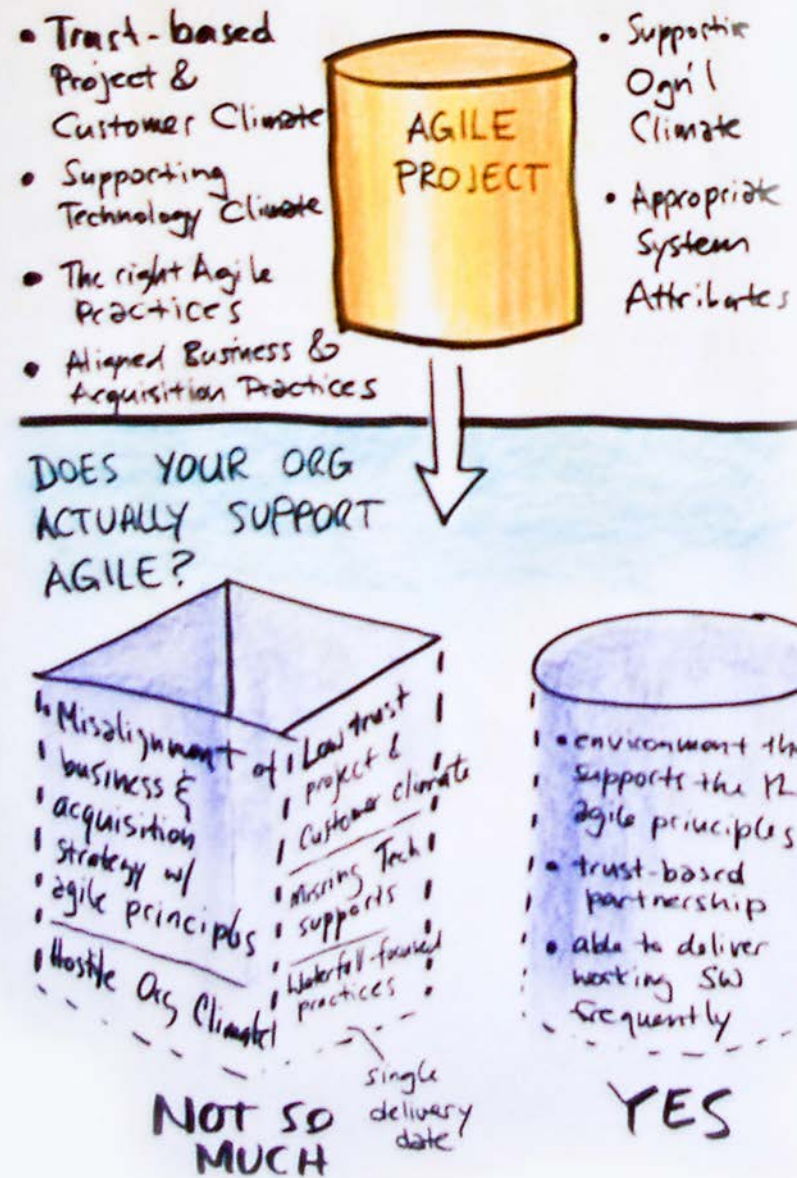 • Trust-based
Project &
Customer Climate
• Supporting
Technology Climate
• The right Agile
Practices
• Aligned Business &
Acquisition Practices
AGILE
PROJECT
• Supportive
Ogn'l
Climate
• Appropriate
System
Attributes
DOES YOUR ORG
ACTUALLY SUPPORT
AGILE?
• Misalignment of
business &
acquisition
strategy w/
agile principles
Hostile Org Climate
Low trust
project &
Customer climate
Missing Tech
supports
Waterfall-focused
practices
single
delivery
date
NOT SO
MUCH
• environment tha
supports the 12
agile principles
• trust-based
partnership
• able to deliver
working SW
frequently
YES